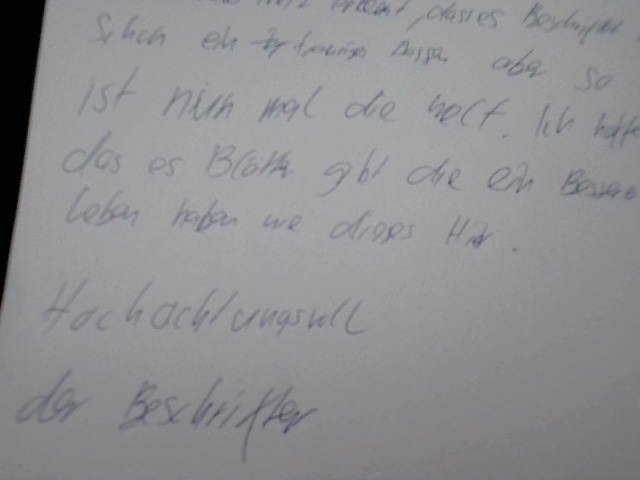 dasses Beschriftet
Schon ein trauriges Dassein aber so
ist nun mal die welt. Ich hoffe
das es Blätter gibt die ein Besseres
leben haben wie dieses Hir.
Hochachtungsvoll
der Beschrifter